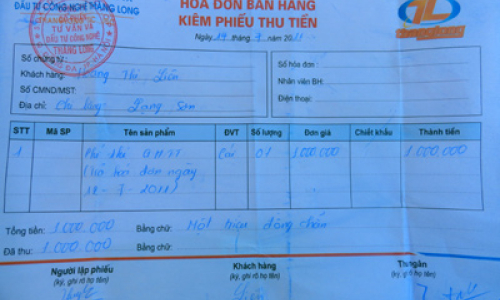 ĐẦU TƯ CÔNG NGHỆ THĂNG LONG
TƯ VẤN VÀ
ĐẦU TƯ CÔNG NGHỆ
THĂNG LONG
HÓA ĐƠN BÁN HÀNG
KIÊM PHIẾU THU TIỀN
Ngày 14 tháng 7 năm 2011
Số chứng từ:
Khách hàng: Thị Liên
Số CMND/MST:
Địa chỉ: Chi Lăng Lạng Sơn
Số hóa đơn:
Nhân viên BH:
Điện thoại:
STT Mã SP Tên sản phẩm ĐVT Số lượng Đơn giá Chiết khấu Thành tiền
1 Cái 01 1.000.000 1.000.000
hóa đơn ngày
2011)
Tổng tiền: 1.000.000 Bằng chữ: Một triệu đồng chẵn
Đã thu: 1.000.000 Bằng chữ:
Người lập phiếu Khách hàng Thu ngân
(ký, ghi rõ họ tên) (ký, ghi rõ họ tên) (ký, ghi rõ họ tên)